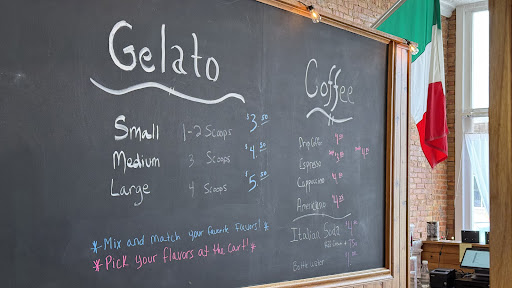 Gelato
Small 1-2 Scoops $3.50
Medium 3 Scoops $4.50
Large 4 Scoops $5.50
*Mix and match your favorite flavors!*
*Pick your flavors at the cart!*
Coffee
Drip Coffee
Espresso
Cappuccino
Americano
Italian Soda
Bottle Water